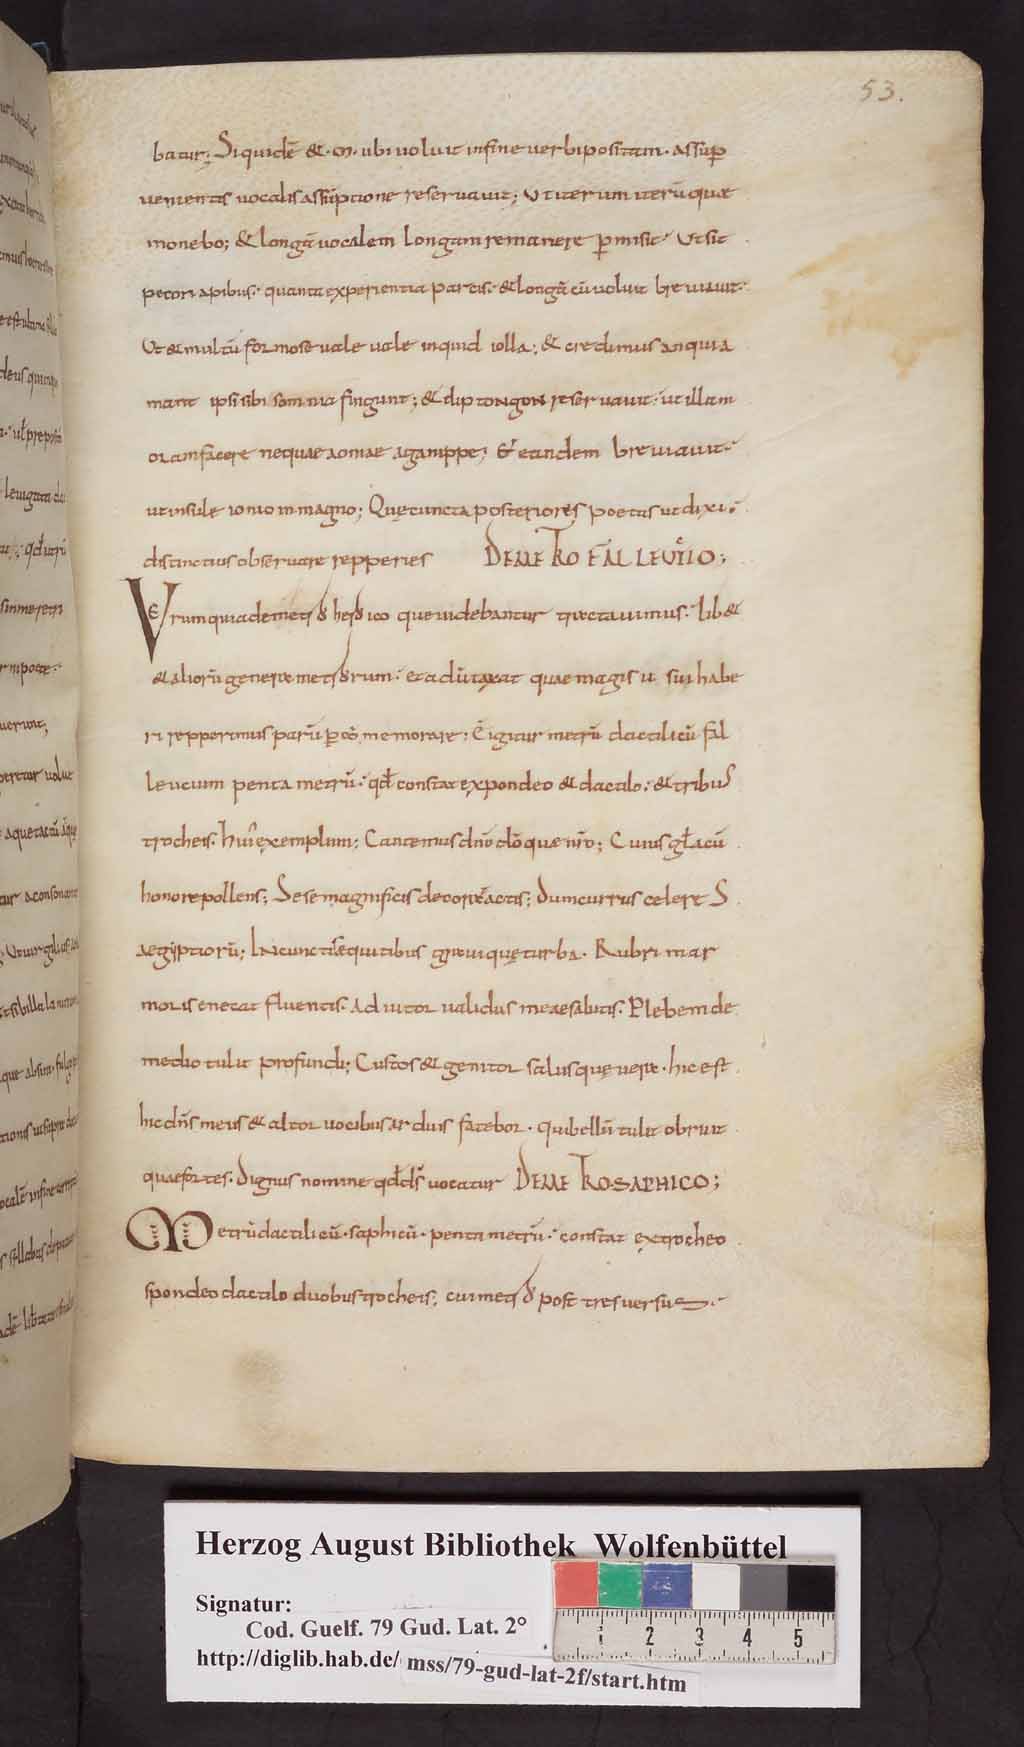 53.
batur; Siquidē & · m · ubi voluit infine verbi positam · assūp
venientis vocalis assūptione reservavit; Ut iterum iterūque
monebo; & longā vocalem longam remanere pmisit · Ut sit
pecori apibus · quanta experientia parcis · & longā cū voluit breviavit ·
Ut & multū formose vale vale inquid iolla; & credimus an quia
mant ipsi sibi somnia fingunt; & diptongon reservavit · ut illam
orcam facere neque aoniae aganippe; & eandem breviavit ·
ut insule ionio in magno; Quę cuncta posteriores poetas ut dixi ·
distinctius observare repperies DE METRO FALLEUTIO;
Verum quia de metro heroico que videbantur tractavimus · lib&
& aliorū genera metrorum · et adūtaxat quae magis usui habe
ri repperimus parū p memorare · Ē igitur metrū dactilicū fal
leucium pentametrū · qđ constat ex pondeo & dactilo · & tribus
trocheis · hui' exemplum; Cantemus dnō dō que nrō; Cuius glacū
honore pollens; Sese magnificis decorat actis; Dum currus celeres
aegyptiorū; IN cunctis equitibus gravique turba · Rubri mar
moris enecat fluentis · Adiutor validus meae salutis · Plebem de
medio tulit profundi; Custos & genitor salusque vera · hic est
hic dn̄s meus & altor vocibus arduis fatebor · qui bellū tulit obruit
quae fortes · Dignus nomine qđ ds vocatur DE METRO SAPHICO;
Metrū dactilicū · saphicū · pentametrū · constat ex trocheo
spondeo dactilo duobus trocheis; cui metro post tres versus ·
Herzog August Bibliothek Wolfenbüttel
Signatur:
Cod. Guelf. 79 Gud. Lat. 2°
http://diglib.hab.de/ mss/79-gud-lat-2f/start.htm
1 2 3 4 5